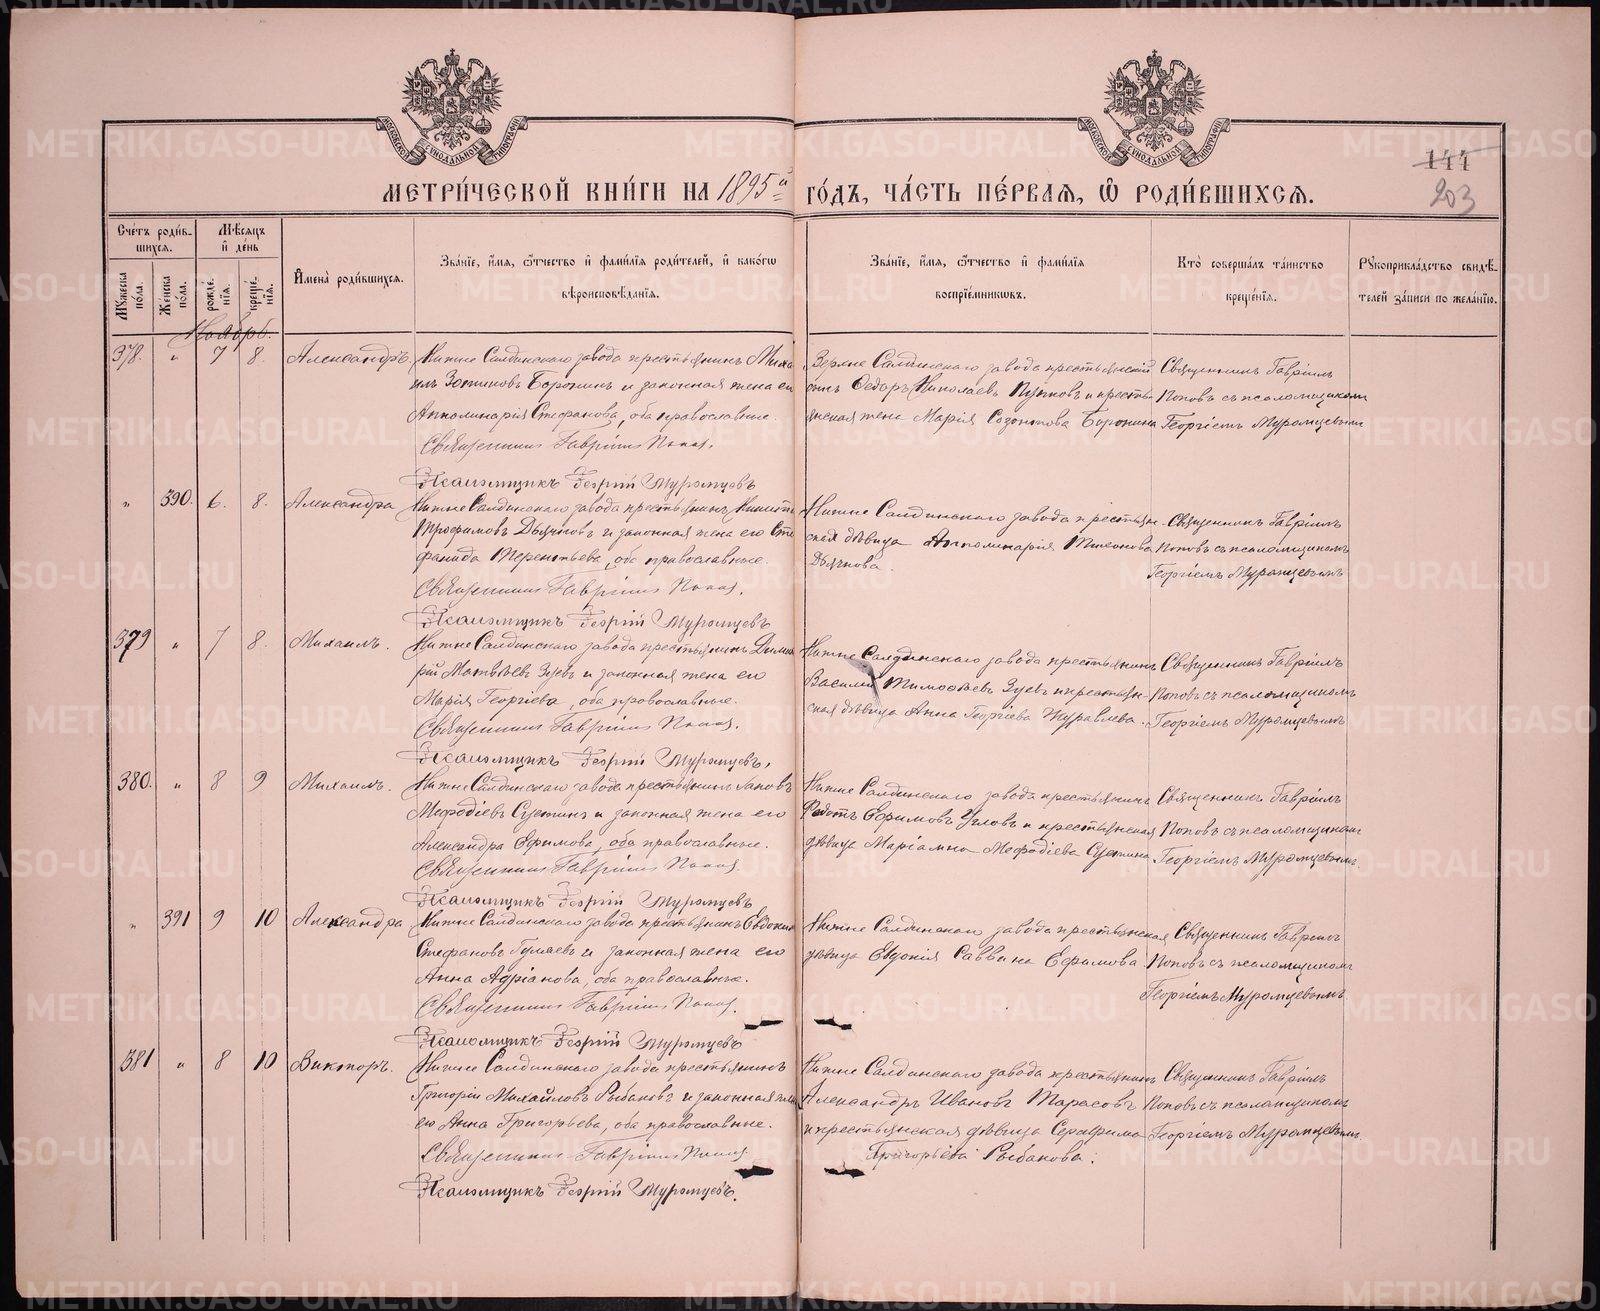 МЕТРИ́ЧЕСКОЙ КНИ́ГИ НА 1895й ГО́ДЪ, ЧА́СТЬ ПЕ́РВАЯ, Ѽ РОДИ́ВШИХСѦ.
144
203
Сче́тъ роди́в-
шихсѧ.
Мѣ́сѧцъ
и҆ де́нь
Мꙋ́жеска
по́ла.
Же́нска
по́ла.
рожде́-
нїѧ.
креще́-
нїѧ.
И҆мена̀ роди́вшихсѧ.
Зва́нїе, и҆́мѧ, ѻ҆́тчество и҆ фами́лїѧ роди́телей, и҆ како́гѡ
вѣроисповѣ́данїѧ.
Зва́нїе, и҆́мѧ, ѻ҆́тчество и҆ фами́лїѧ
воспрїе́мникѡвъ.
Кто̀ соверша́лъ та́инство
креще́нїѧ.
Рꙋкоприкла́дство свидѣ́-
телей за́писи по жела́нїю.
Ноябрь.
378. " 7 8. Александръ.
Нижне Салдинскаго завода крестьянинъ Миха
илъ Зотиковъ Боронинъ и законная жена его
Апполинарія Стефанова, оба православные.
Священникъ Гавріилъ Поповъ.
Псаломщикъ Георгій Муромцевъ
Верхне Салдинскаго завода
Федоръ Николаевъ и кресть
янская жена Марія Созонтова Боронина
Священникъ Гавріилъ
Поповъ съ псаломщикомъ
Георгіемъ Муромцевымъ
" 390. 6. 8. Александра
Нижне Салдинскаго завода крестьянинъ Никита
Трофимовъ Дьячковъ и законная жена его Сте
фанида Терентьева, оба православные.
Священникъ Гавріилъ Поповъ.
Псаломщикъ Георгій Муромцевъ
Нижне Салдинскаго завода крестьян-
ская дѣвица Апполинарія
Дьячкова.
Священникъ Гавріилъ
Поповъ съ псаломщикомъ
Георгіемъ Муромцевымъ
379 " 7 8. Михаилъ.
Нижне Салдинскаго завода крестьянинъ Димит
рій Матвѣевъ Зуевъ и законная жена его
Марія Георгіева, оба православные.
Священникъ Гавріилъ Поповъ.
Псаломщикъ Георгій Муромцевъ,
Нижне Салдинскаго завода крестьянинъ
Василій Тимоѳѣевъ Зуевъ и крестьян-
ская дѣвица Анна Георгіева Журавлева.
Священникъ Гавріилъ
Поповъ съ псаломщикомъ
Георгіемъ Муромцевымъ
380. " 8 9 Михаилъ.
Нижне Салдинскаго завода крестьянинъ Іаковъ
Мефодіевъ Сустинъ и законная жена его
Александра Ефимова, оба православные.
Священникъ Гавріилъ Поповъ.
Псаломщикъ Георгій Муромцевъ
Нижне Салдинскаго завода крестьянинъ
Федотъ Ефимовъ Угловъ и крестьянская
дѣвица Маріамна Мефодіева Сустина
Священникъ Гавріилъ
Поповъ съ псаломщикомъ
Георгіемъ Муромцевымъ.
" 391 9 10 Александра
Нижне Салдинскаго завода крестьянинъ Евдокимъ
Стефановъ Гуляевъ и законная жена его
Анна Адріанова, оба православные.
Священникъ Гавріилъ Поповъ.
Псаломщикъ Георгій Муромцевъ
Нижне Салдинскаго завода крестьянская
дѣвица Евдокія Саввина Ефимова
Священникъ Гавріилъ
Поповъ съ псаломщикомъ
Георгіемъ Муромцевымъ.
381 " 8 10 Викторъ.
Нижне Салдинскаго завода крестьянинъ
Григорій Михайловъ Рыбаковъ и законная жена
его Анна Григорьева, оба православные.
Священникъ Гавріилъ Поповъ
Псаломщикъ Георгій Муромцевъ.
Нижне Салдинскаго завода крестьянинъ
Александръ Ивановъ Тарасовъ
и крестьянская дѣвица Серафима
Григорьева Рыбакова.
Священникъ Гавріилъ
Поповъ съ псаломщикомъ
Георгіемъ Муромцевымъ.
METRIKI.GASO-URAL.RU